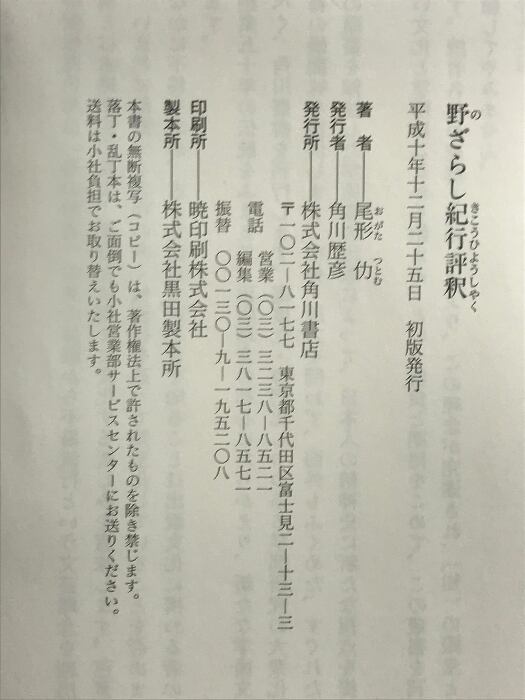 野ざらし紀行評釈
平成十年十二月二十五日　初版発行
著　者――尾形　仂
発行者――角川歴彦
発行所――株式会社角川書店
〒一〇二―八一七七　東京都千代田区富士見二―十三―三
電話　営業（〇三）三二三八―八五二一
編集（〇三）三八一七―八五七一
振替　〇〇一三〇―九―一九五二〇八
印刷所――暁印刷株式会社
製本所――株式会社黒田製本所
本書の無断複写（コピー）は、著作権法上で許されたものを除き禁じます。
落丁・乱丁本は、ご面倒でも小社営業部サービスセンターにお送りください。
送料は小社負担でお取り替えいたします。